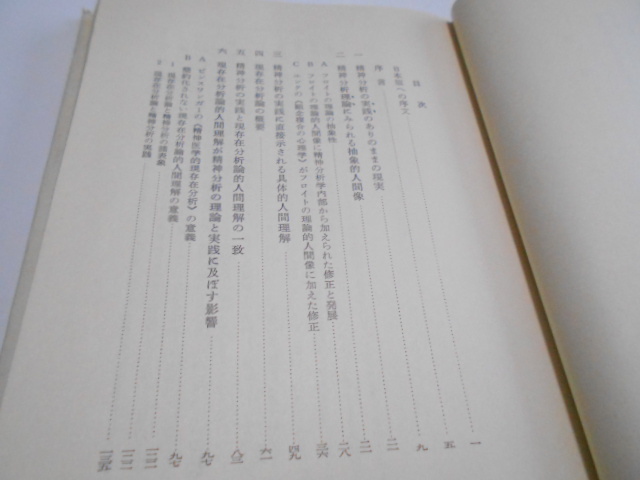 目次
日本版への序文 一
序言 五
一 精神分析の実践のありのままの現実 九
二 精神分析理論にみられる抽象的人間像
A フロイトの理論の抽象性
B フロイトの理論的人間像に精神分析学内部から加えられた修正と発展 二八
C ユングの の心理学》がフロイトの理論的人間像に加えた修正 三六
三 精神分析の実践に直接示される具体的人間理解 四九
四 現存在分析論の概要 六一
五 精神分析の実践と現存在分析論的人間理解の一致
六 現存在分析論的人間理解が精神分析の理論と実践に及ぼす影響 九七
A ビンスワンガーの《精神医学的現存在分析》の意義 九七
B 簡約化されない現存在分析論的人間理解の意義
1 現存在分析論と精神分析の諸表象
2 現存在分析論と精神分析の実践 一三五